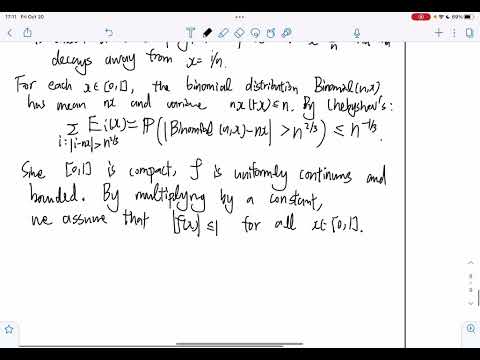 17:11 Fri Oct 20
69%
decays away from x = i/n.
For each x∈[0,1], the binomial distribution Binomial(n,x)
has mean nx and variance nx(1-x) ≤ n. By Chebyshev's:
∑ Ei(x) = ℙ(|Binomial(n,x) - nx| > n^{2/3}) ≤ n^{-1/3}
i:|i-nx|>n^{2/3}
Since [0,1] is compact, f is uniformly continuous and
bounded. By multiplying by a constant,
we assume that |f(x)| ≤ 1 for all x∈[0,1].